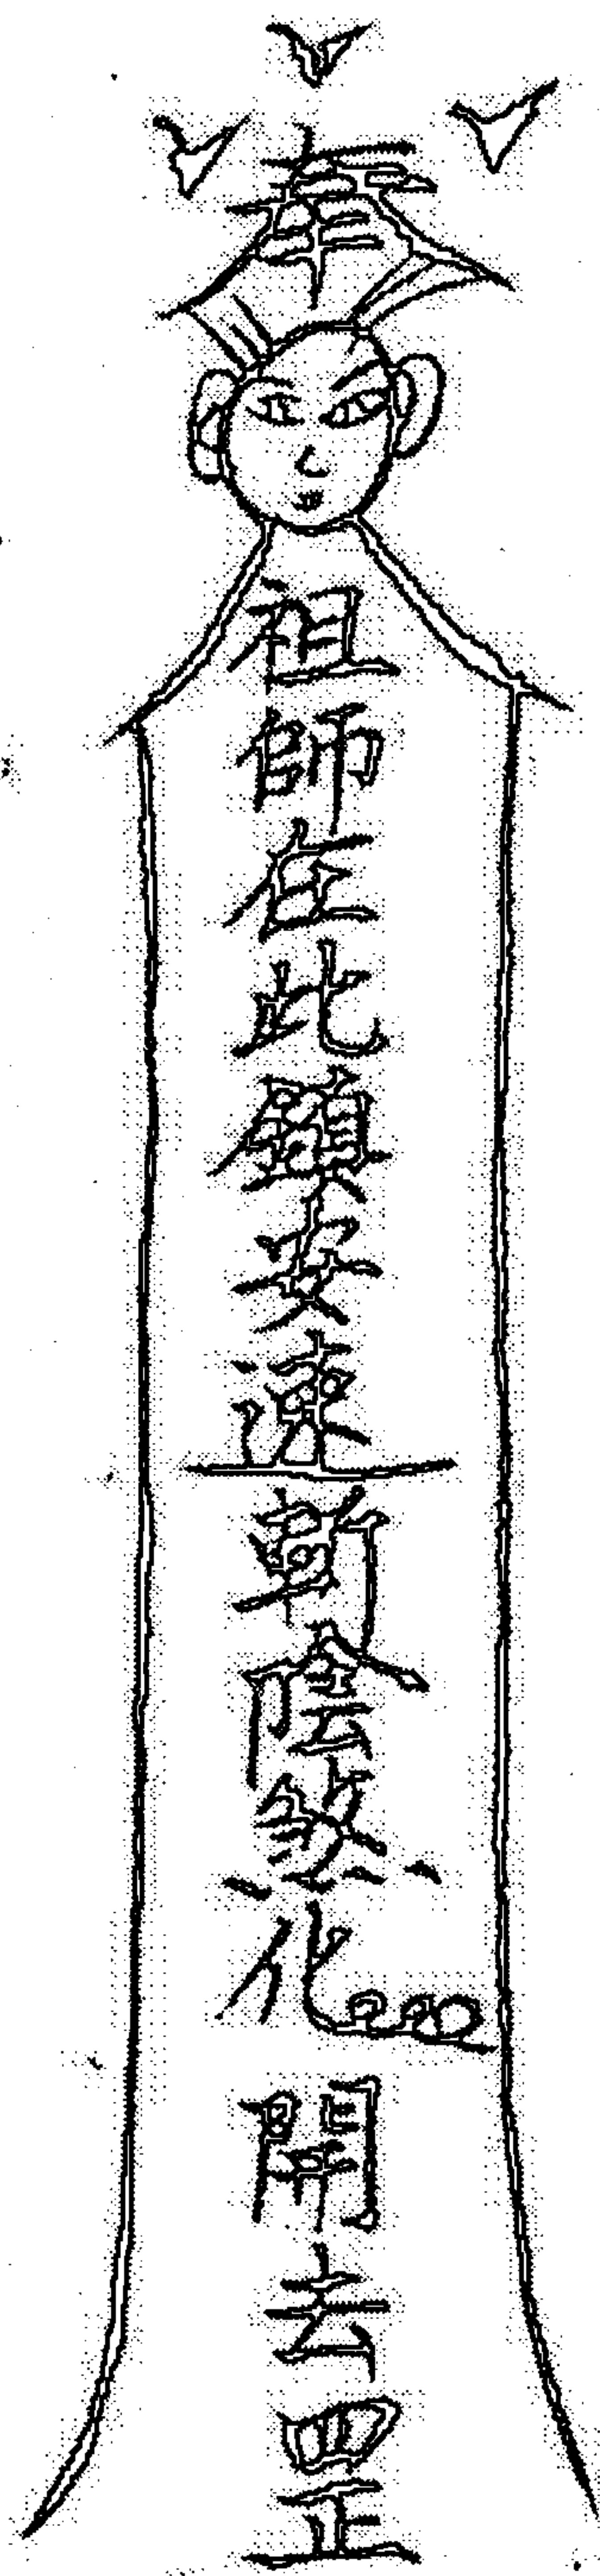 奉
祖師在此鎮安速斬陰煞化開去罡